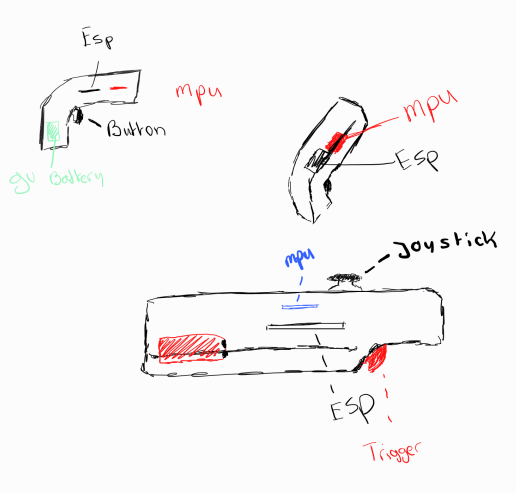 Esp
mpu
Button
9v Battery
mpu
Esp
mpu
Joystick
ESP
Trigger